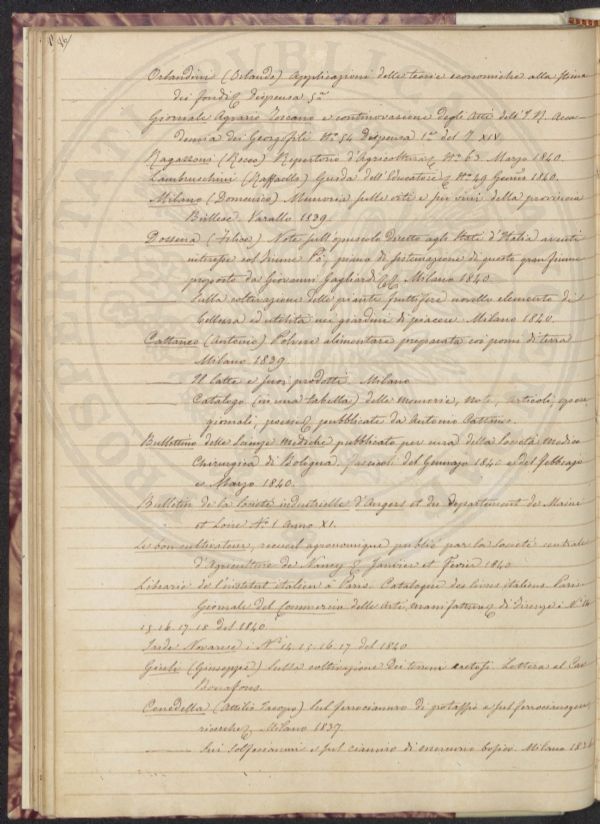 Orlandini (Orlando) Applicazioni delle teorie economiche alla stima
dei fondi & Dispensa 5ª
Giornale Agrario Toscano e continovazione degli Atti dell'I. R. Acca-
demia dei Georgofili Nº 54 Dispensa 1ª del T. XIV.
Ragazzoni (Rocco) Repertorio d'Agricoltura & Nº 63. Marzo 1840.
Lambruschini (Raffaello) Guida dell'Educatore & Nº 49 1840.
Milano (Domenico) Memoria sulle viti e sui vini della provincia
Biellese. Varallo 1839.
Dossena (Felice) Note sull'opuscolo Diretto agli Stati d'Italia aventi
interesse col fiume Pò, piano di sistemazione di questo gran fiume
proposto da Giovanni Gagliardi && Milano 1840.
Sulla coltivazione delle piante fruttifere novello elemento di
bellezza ed utilità nei giardini di piacere. Milano 1840.
Cattaneo (Antonio) Polvere alimentare preparata coi pomi di terra
Milano 1839.
—— Il latte e suoi prodotti. Milano
Catalogo (in una tabella) delle memorie, note, articoli,
giornali, poesie & pubblicate da Antonio Cattaneo.
Bullettino delle scienze mediche pubblicato per cura della Società medico
Chirurgica di Bologna. fascicoli del Gennajo 1840 e del febbrajo
e Marzo 1840.
Bulletin de la Société industrielle d'Angers et du Departement de Maine
et Loire Nº 1 Anno XI.
Le bon cultivateur, recueil agronomique publié par la Société centrale
d'Agriculture de Nancy & Janvier et Fevrier 1840
Librarie de l'institut italien à Paris. Catalogue des livres italiens. Paris
Giornale del Commercio delle Arti, Manifatture & di Firenze i Ni 14
15. 16. 17. 18 del 1840.
Novarese i Ni 14. 15. 16. 17 del 1840
(Giuseppe) Sulla coltivazione dei terreni Lettera al Cav
Bonafous.
Cenedella (Attilio Jacopo) Sul ferrocianuro di potassio e sul ferrocianogeno
ricerche & Milano 1837.
—— Sui Solfocianuri e sul cianuro di mercurio Milano